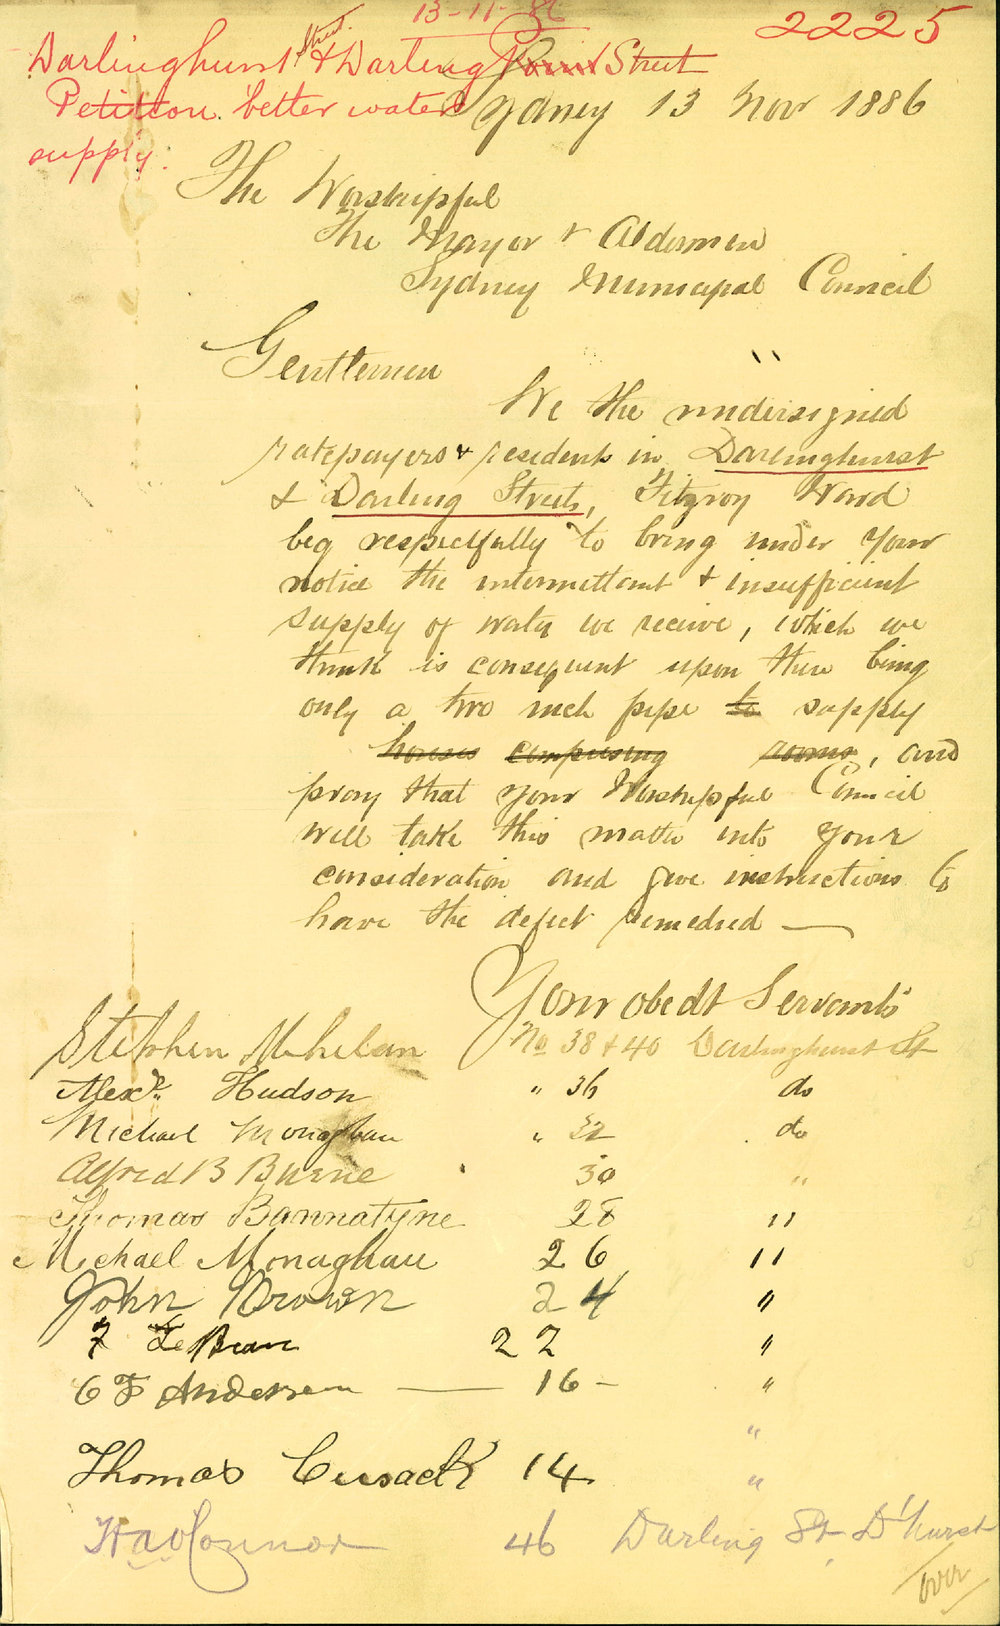 13-11-86
2225
Darlinghurst Street & Darling Point Street
Petition. better water
supply.
Sydney 13 Nov 1886
The Worshipful
The Mayor & Aldermen
Sydney Municapal Council
Gentlemen
We the undersigned
ratepayers & residents in Darlinghurst
& Darling Streets, Fitzroy Ward
beg respectfully to bring under your
notice the intermittant & insufficient
supply of water we receive, which we
think is consequent upon there being
only a two inch pipe to supply
houses comprising rooms, and
pray that your Worshipful Council
will take this matter into your
consideration and give instructions to
have the defect remedied —
Your obedt Servants
Stephen Whelan No 38 & 40 Darlinghurst St
Alexr. Hudson " 36 do
Michael Monaghan " 32 do
Alfred B Burne 30 "
Thomas Bannatyne 28 "
Michael Monaghan 26 "
John Brown 24 "
F Le Beau 22 "
C F Andersen — 16 - "
"
Thomas Cusack 14 "
O'Connor 46 Darling St D'hurst
over